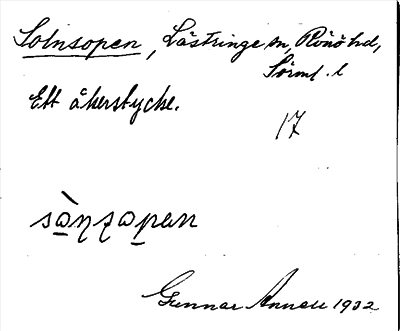 Solnsopen, Lästringe sn, Rönö hd,
Sörml. l
Ett åkerstycke.
17
sὰn̥s̥o̥pan
Gunnar Annell 1932